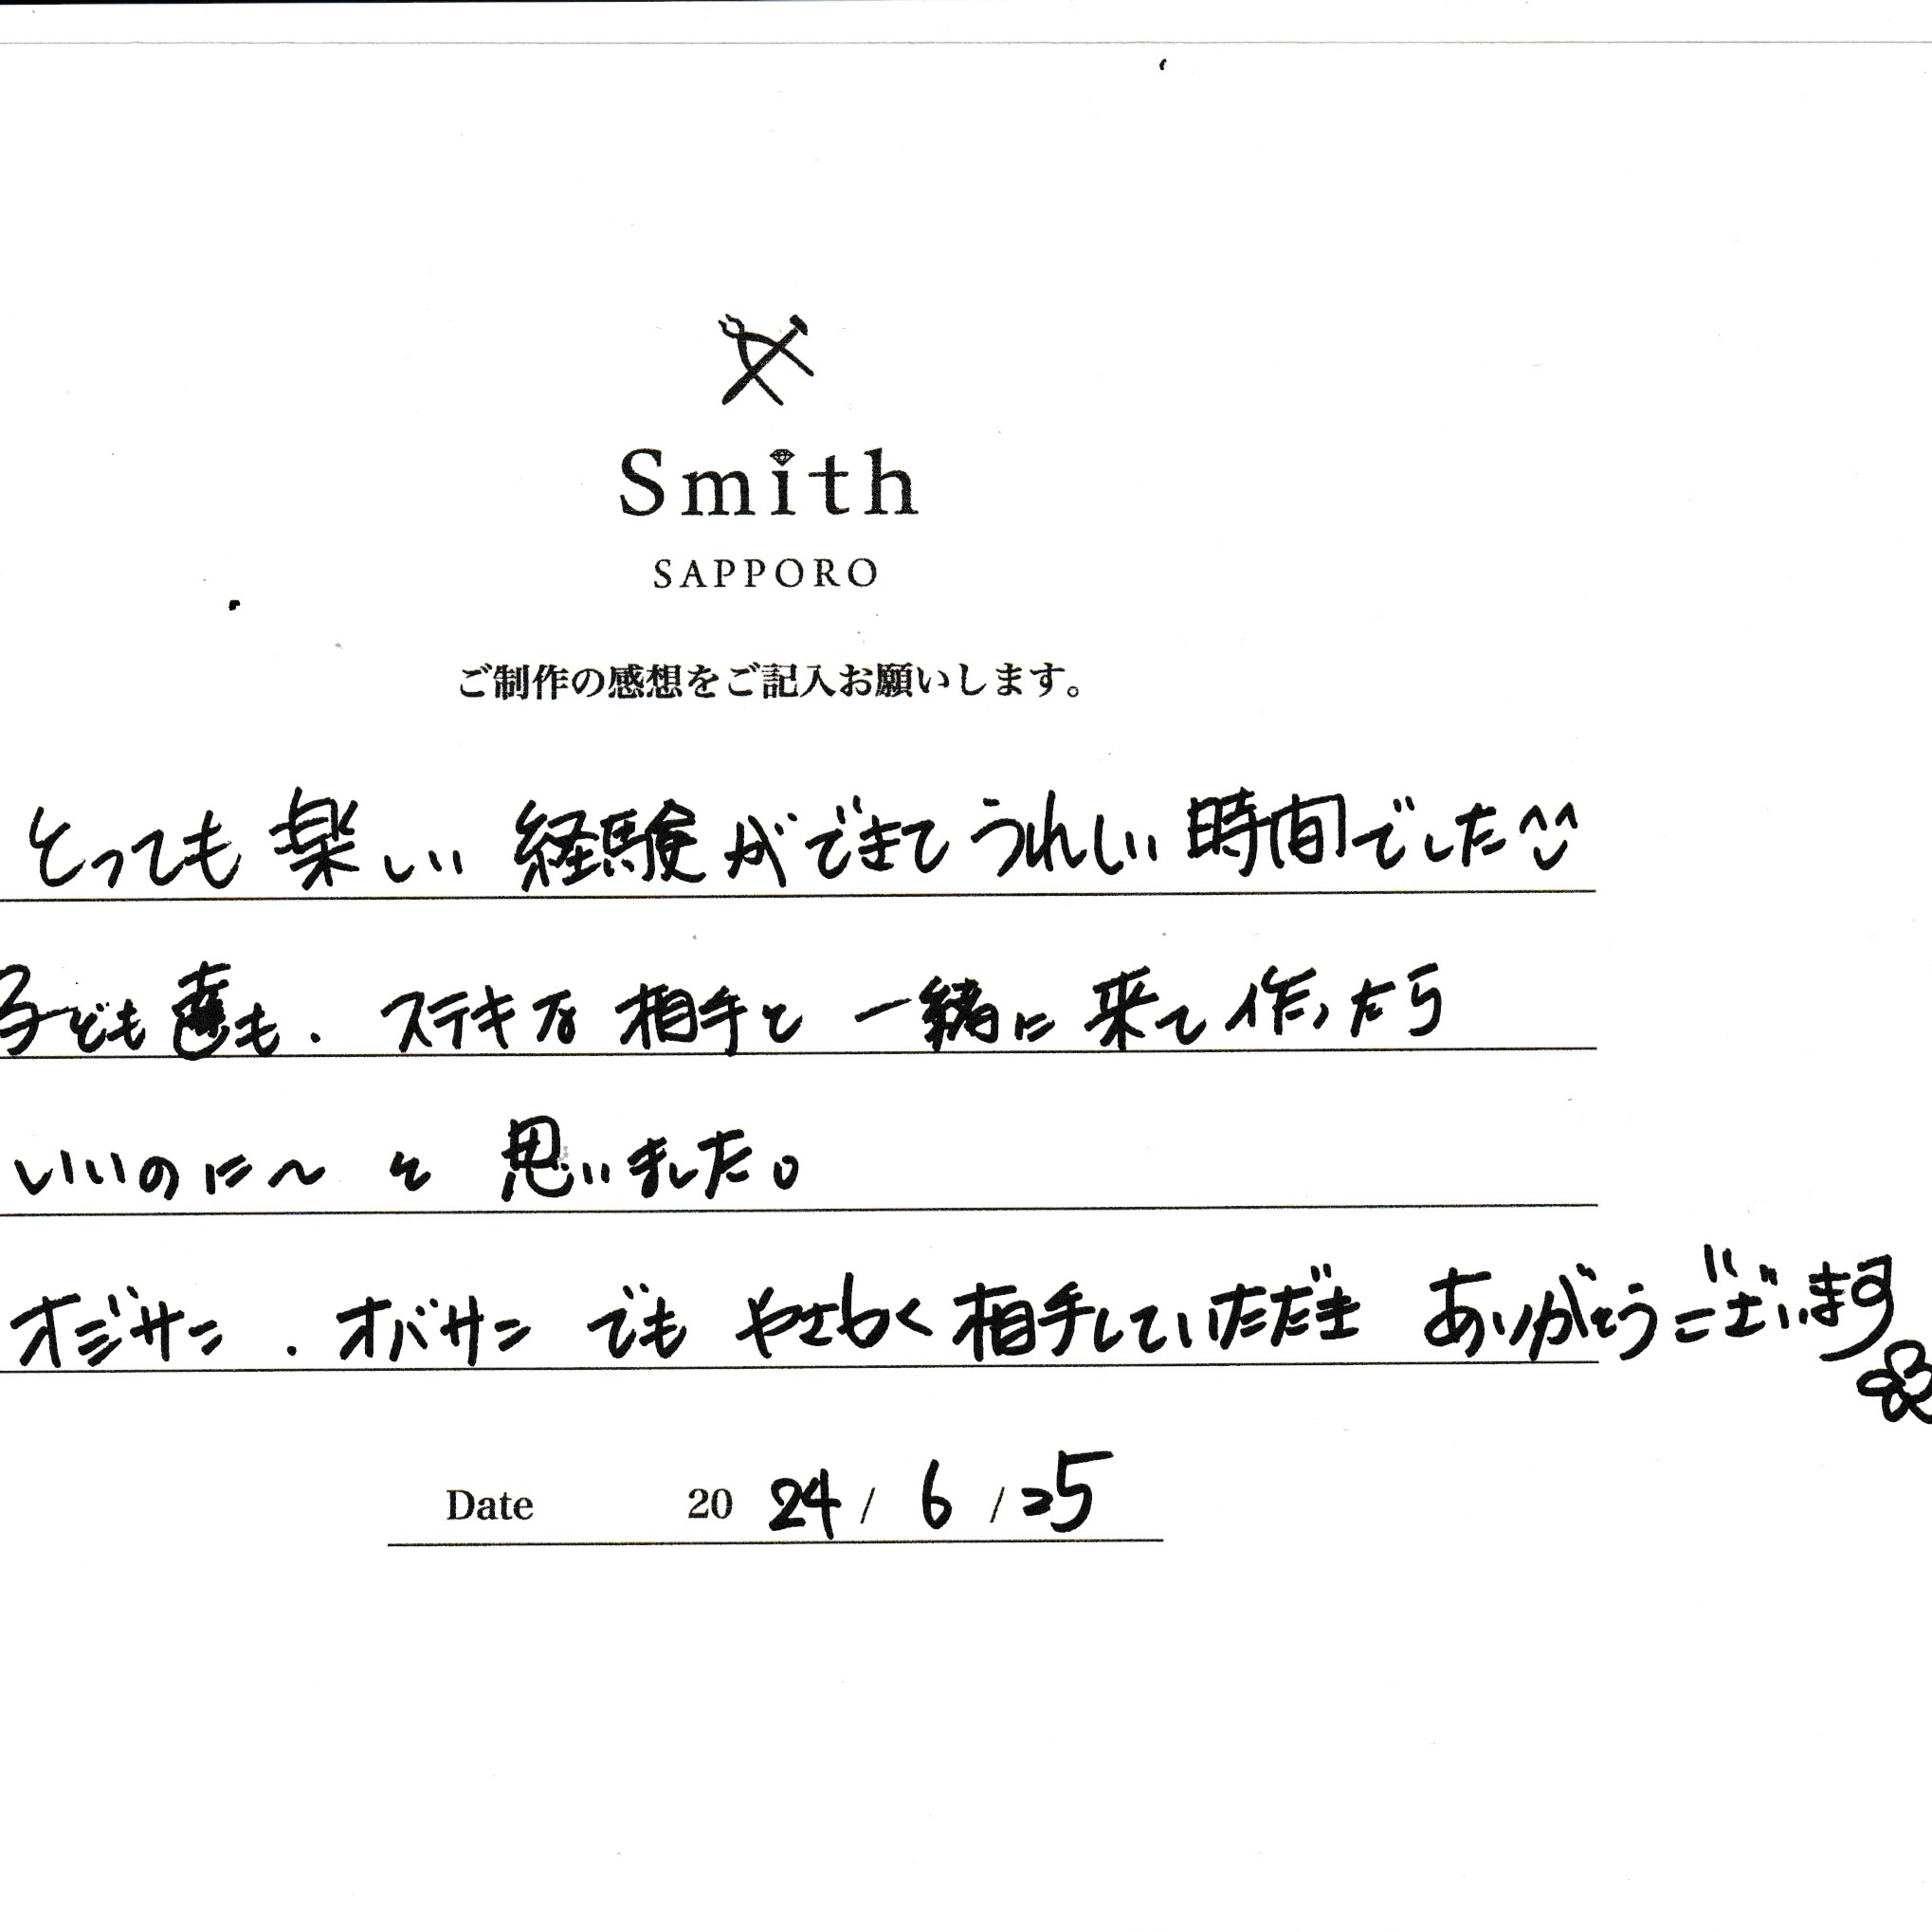 Smith
SAPPORO
ご制作の感想をご記入お願いします。
とっても楽しい経験ができてうれしい時間でした
子ども達も、ステキな相手と一緒に来て作ったら
いいのに〜と思いました。
オジサン、オバサンでもやさしく相手していただき ありがとうございます
Date 2024 / 6 / 25